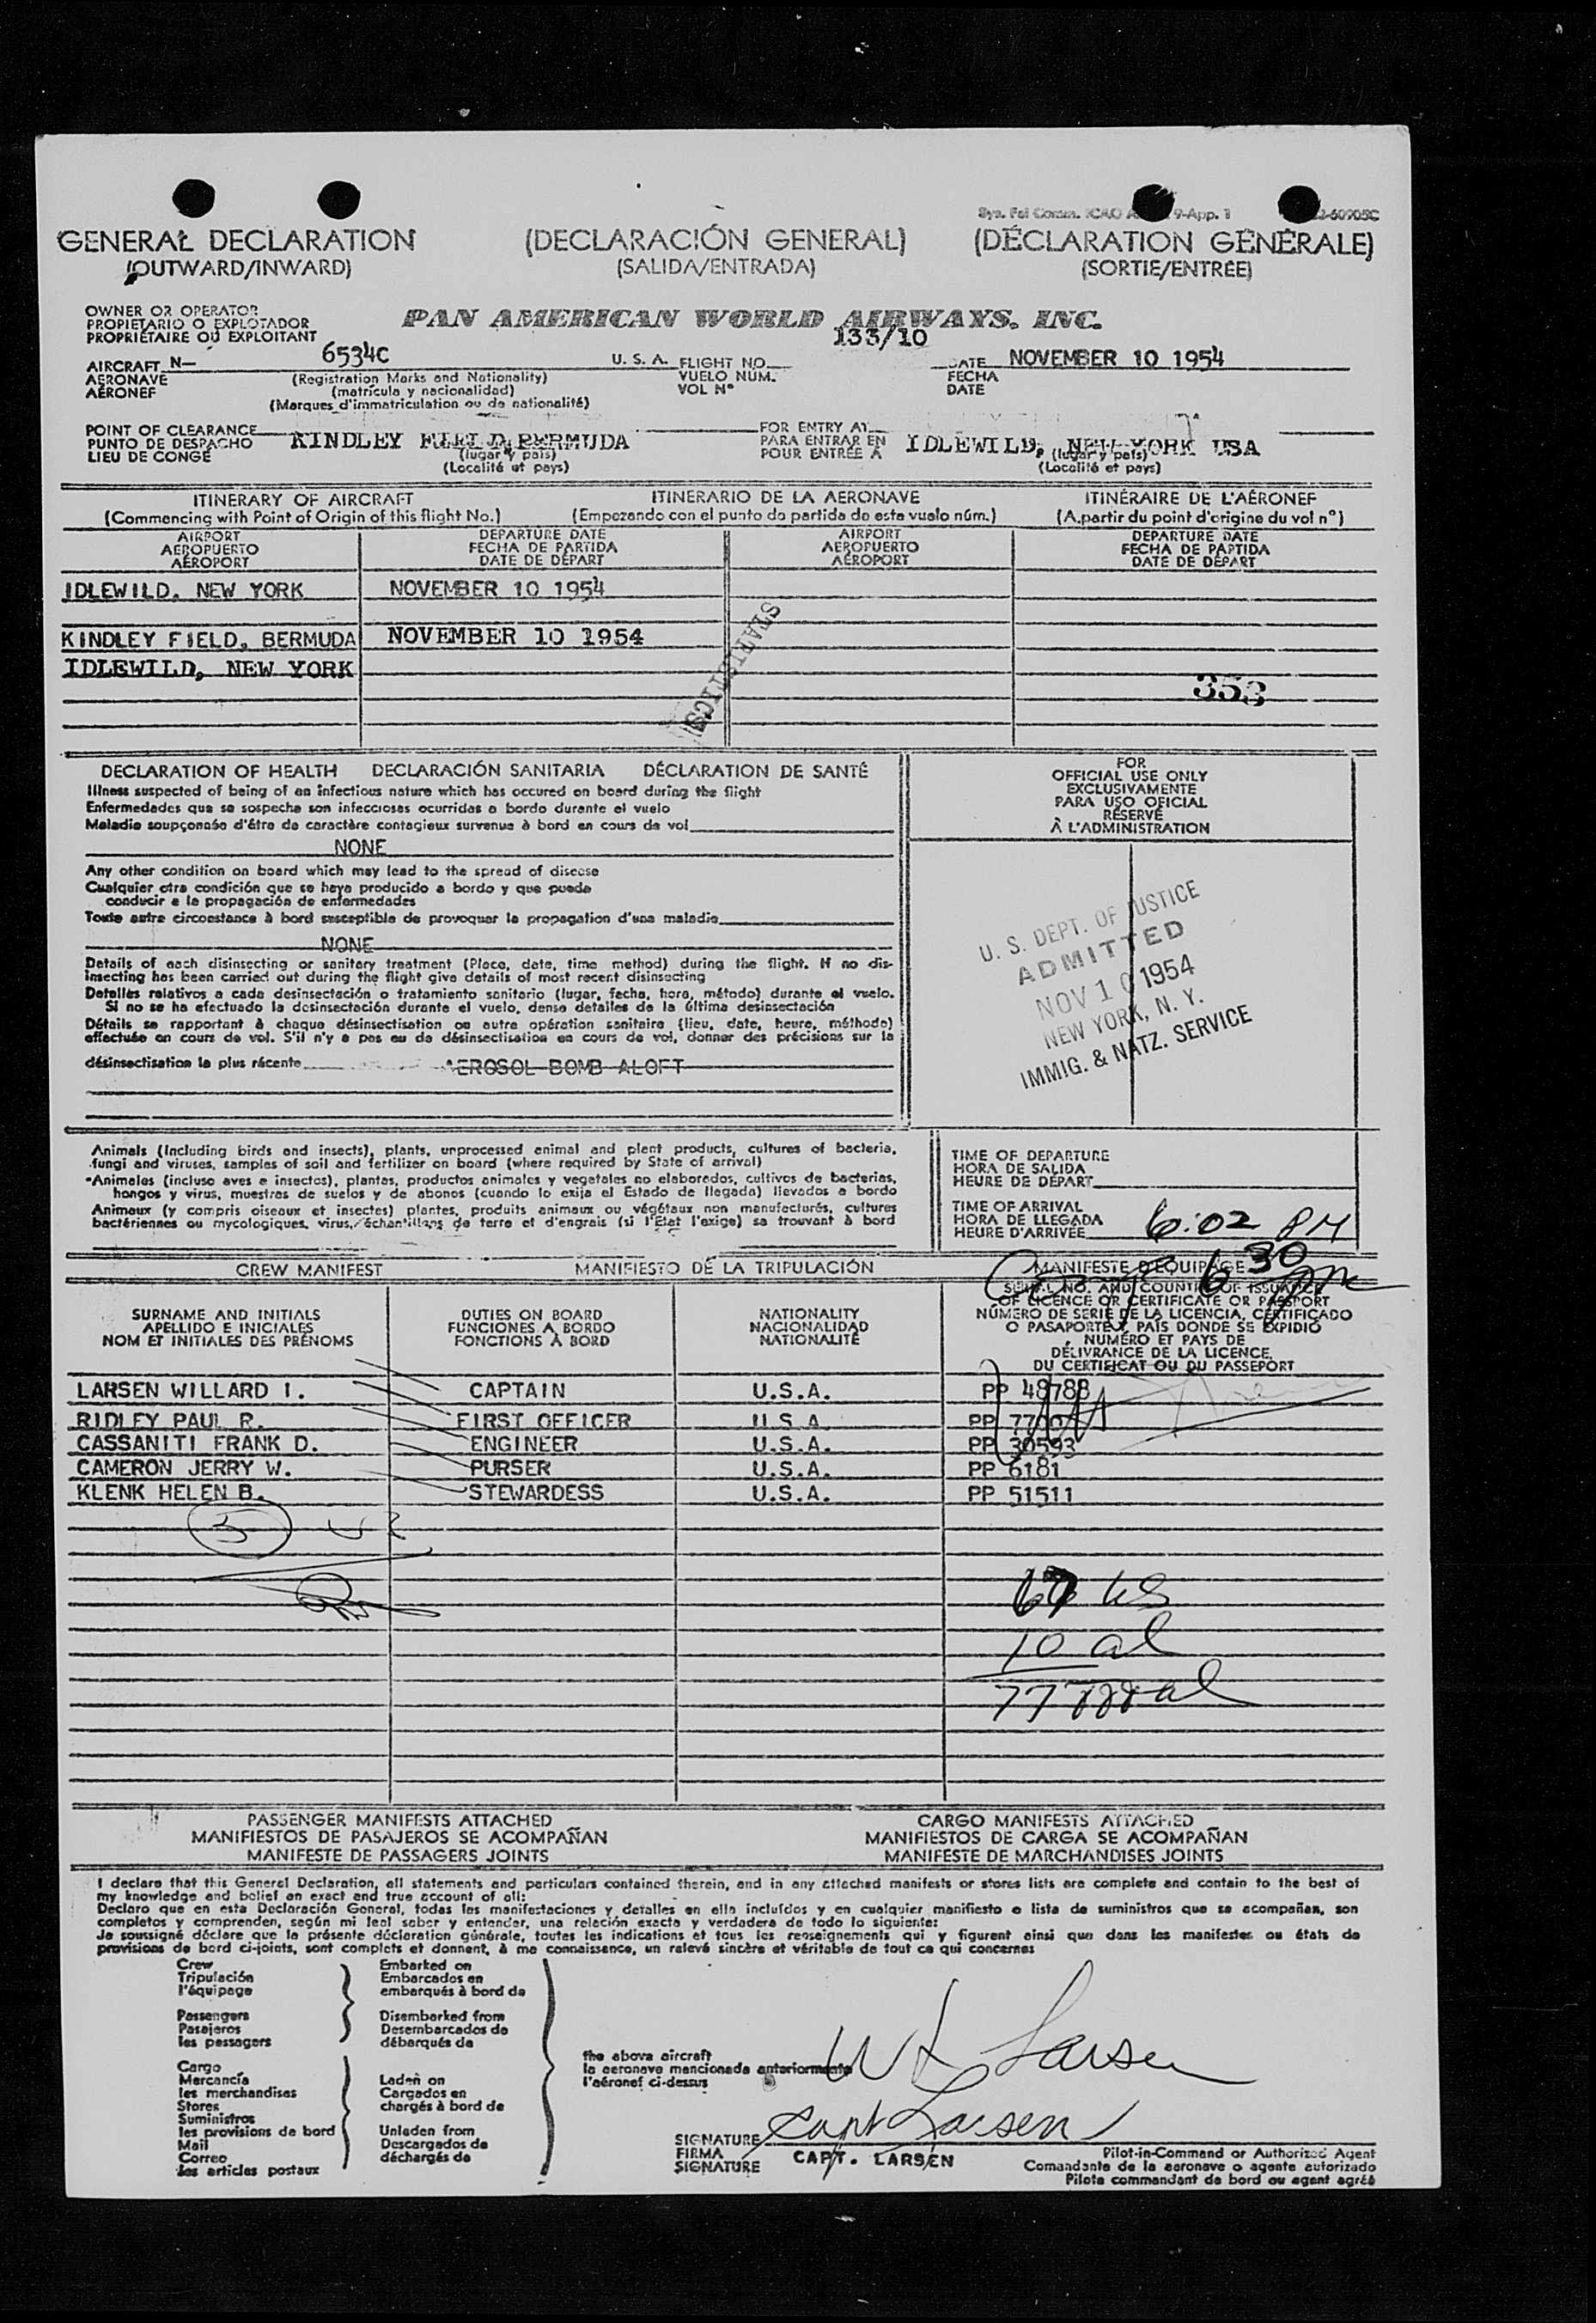 Sys. Fel Comm. ICAO 9-App. 1
GENERAL DECLARATION (DECLARACIÓN GENERAL) (DÉCLARATION GÉNÉRALE)
(OUTWARD/INWARD) (SALIDA/ENTRADA) (SORTIE/ENTRÉE)
OWNER OR OPERATOR
PROPIETARIO O EXPLOTADOR
PROPRIÉTAIRE OU EXPLOITANT
PAN AMERICAN WORLD AIRWAYS, INC.
133/10
AIRCRAFT N— 6534C U. S. A. FLIGHT NO. DATE NOVEMBER 10 1954
AERONAVE (Registration Marks and Nationality) VUELO NÚM. FECHA
AÉRONEF (matrícula y nacionalidad) VOL Nº DATE
(Marques d'immatriculation ou de nationalité)
POINT OF CLEARANCE FOR ENTRY AT
PUNTO DE DESPACHO KINDLEY FIELD, BERMUDA PARA ENTRAR EN IDLEWILD, NEW YORK USA
LIEU DE CONGÉ (lugar y país) POUR ENTRÉE À (lugar y país)
(Localité et pays) (Localité et pays)
ITINERARY OF AIRCRAFT ITINERARIO DE LA AERONAVE ITINÉRAIRE DE L'AÉRONEF
(Commencing with Point of Origin of this flight No.) (Empezando con el punto do partida de este vuelo núm.) (A partir du point d'origine du vol nº)
AIRPORT DEPARTURE DATE AIRPORT DEPARTURE DATE
AEROPUERTO FECHA DE PARTIDA AEROPUERTO FECHA DE PARTIDA
AÉROPORT DATE DE DÉPART AÉROPORT DATE DE DÉPART
IDLEWILD, NEW YORK NOVEMBER 10 1954
KINDLEY FIELD, BERMUDA NOVEMBER 10 1954
IDLEWILD, NEW YORK
STATISTICS
353
DECLARATION OF HEALTH DECLARACIÓN SANITARIA DÉCLARATION DE SANTÉ
Illness suspected of being of an infectious nature which has occured on board during the flight
Enfermedades que se sospecha son infecciosas ocurridas a bordo durante el vuelo
Maladie soupçonnée d'être de caractère contagieux survenue à bord en cours de vol
NONE
Any other condition on board which may lead to the spread of disease
Cualquier otra condición que se haya producido a bordo y que puede
conducir a la propagación de enfermedades
Toute autre circonstance à bord susceptible de provoquer la propagation d'une maladie
NONE
Details of each disinsecting or sanitary treatment (Place, date, time method) during the flight. If no dis-
insecting has been carried out during the flight give details of most recent disinsecting
Detalles relativos a cada desinsectación o tratamiento sanitario (lugar, fecha, hora, método) durante el vuelo.
Si no se ha efectuado la desinsectación durante el vuelo, dense detalles de la última desinsectación
Détails se rapportant à chaque désinsectisation ou autre opération sanitaire (lieu, date, heure, méthode)
effectuée en cours de vol. S'il n'y a pas eu de désinsectisation en cours de vol, donner des précisions sur la
désinsectisation la plus récente AEROSOL BOMB ALOFT
FOR
OFFICIAL USE ONLY
EXCLUSIVAMENTE
PARA USO OFICIAL
RÉSERVÉ
À L'ADMINISTRATION
U. S. DEPT. OF JUSTICE
ADMITTED
NOV 10 1954
NEW YORK, N. Y.
IMMIG. & NATZ. SERVICE
Animals (Including birds and insects), plants, unprocessed animal and plant products, cultures of bacteria,
fungi and viruses, samples of soil and fertilizer on board (where required by State of arrival)
Animales (incluso aves e insectos), plantas, productos animales y vegetales no elaborados, cultivos de bacterias,
hongos y virus, muestras de suelos y de abonos (cuando lo exija el Estado de llegada) llevados a bordo
Animaux (y compris oiseaux et insectes) plantes, produits animaux ou végétaux non manufacturés, cultures
bactériennes ou mycologiques, virus, échantillons de terre et d'engrais (si l'État l'exige) se trouvant à bord
TIME OF DEPARTURE
HORA DE SALIDA
HEURE DE DÉPART
TIME OF ARRIVAL
HORA DE LLEGADA
HEURE D'ARRIVÉE 6:02 PM
630
CREW MANIFEST MANIFIESTO DE LA TRIPULACIÓN MANIFESTE D'ÉQUIPAGE
SURNAME AND INITIALS
APELLIDO E INICIALES
NOM ET INITIALES DES PRÉNOMS
DUTIES ON BOARD
FUNCIONES A BORDO
FONCTIONS À BORD
NATIONALITY
NACIONALIDAD
NATIONALITÉ
SERIAL NO. AND COUNTRY OF ISSUANCE
OF LICENCE OR CERTIFICATE OR PASSPORT
NÚMERO DE SERIE DE LA LICENCIA, CERTIFICADO
O PASAPORTE Y PAÍS DONDE SE EXPIDIÓ
NUMÉRO ET PAYS DE
DÉLIVRANCE DE LA LICENCE,
DU CERTIFICAT OU DU PASSEPORT
LARSEN WILLARD I. CAPTAIN U.S.A. PP 48788
RIDLEY PAUL R. FIRST OFFICER U.S.A. PP
CASSANITI FRANK D. ENGINEER U.S.A. PP 30593
CAMERON JERRY W. PURSER U.S.A. PP 6181
KLENK HELEN B. STEWARDESS U.S.A. PP 51511
5
67 us
10 al
77
PASSENGER MANIFESTS ATTACHED CARGO MANIFESTS ATTACHED
MANIFIESTOS DE PASAJEROS SE ACOMPAÑAN MANIFIESTOS DE CARGA SE ACOMPAÑAN
MANIFESTE DE PASSAGERS JOINTS MANIFESTE DE MARCHANDISES JOINTS
I declare that this General Declaration, all statements and particulars contained therein, and in any attached manifests or stores lists are complete and contain to the best of
my knowledge and belief an exact and true account of all:
Declaro que en esta Declaración General, todas las manifestaciones y detalles en ella incluídos y en cualquier manifiesto o lista de suministros que se acompañan, son
completos y comprenden, según mi leal saber y entender, una relación exacta y verdadera de todo lo siguiente:
Je soussigné déclare que la présente déclaration générale, toutes les indications et tous les renseignements qui y figurent ainsi que dans les manifestes ou états de
provisions de bord ci-joints, sont complets et donnent, à ma connaissance, un relevé sincère et véritable de tout ce qui concernes
Crew Embarked on
Tripulación Embarcados en
l'équipage embarqués à bord de
Passengers Disembarked from
Pasajeros Desembarcados de
les passagers débarqués de
Cargo
Mercancía Laden on
les merchandises Cargados en
Stores chargés à bord de
Suministros
les provisions de bord Unladen from
Mail Descargados de
Correo déchargés de
les articles postaux
the above aircraft
la aeronave mencionada anteriormente
l'aéronef ci-dessus
W I Larsen
Capt Larsen
SIGNATURE
FIRMA CAPT. LARSEN
SIGNATURE
Pilot-in-Command or Authorized Agent
Comandante de la aeronave o agente autorizado
Pilote commandant de bord ou agent agréé